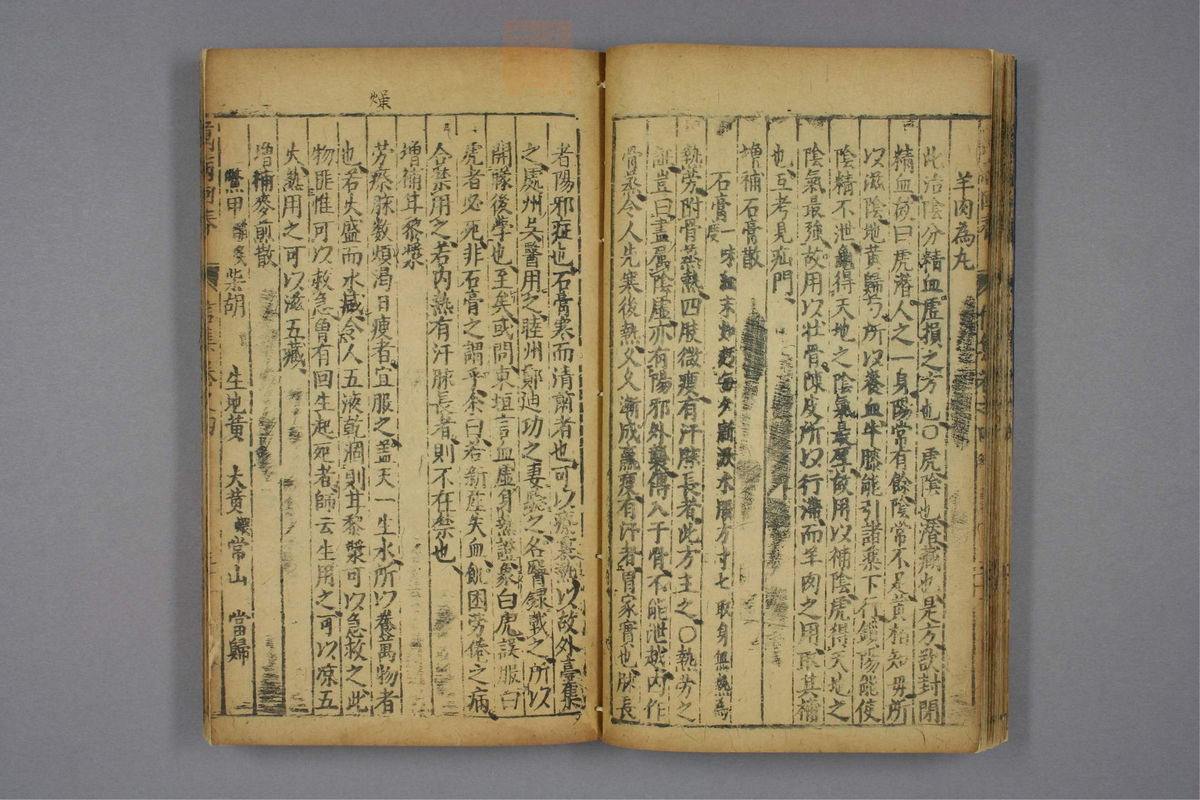 羊肉為丸
此治陰分精血虛損之方也○虎陰也潛藏也是方欲封閉
精血故曰虎潛人之一身陽常有餘陰常不足黃柏知母所
以滋陰地黃歸芍所以養血牛膝能引諸藥下行鎖陽能使
陰精不泄龜得天地之陰氣最厚故用以補陰虎得天地之
陰氣最強故用以壯骨陳皮所以行滯而羊肉之用取其補
也互考見疝門
增補石膏散
石膏一味細末如麪每夕新汲水服方寸七取身無熱為
度
熱勞附骨蒸熱四肢微瘦有汗脈長者此方主之○熱勞之
証豈曰盡屬陰虛亦有陽邪外襲傳入于骨不能泄越內作
骨蒸令人先寒後熱久久漸成羸瘦有汗者胃家實也脈長
者陽邪症也石膏寒而清肅者也可以療蒸熱以故外臺集
之處州吳醫用之睦州鄭迪功之妻驗之名醫錄載之所以
開矇後學也至矣或問東垣言血虛身熱證象白虎誤服白
虎者必死非石膏之謂乎余曰若新產失血飢困勞倦之病
合禁用之若內熱有汗脈長者則不在禁也
增補甘梨漿
勞瘵脈數煩渴日瘦者宜服之蓋天一生水所以養萬物者
也若火盛而水虧令人五液乾涸則甘梨漿可以急救之此
物匪惟可以救急曾有回生起死者師云生用之可以凉五
火熱用之可以滋五藏
增補麥煎散
鱉甲 柴胡 生地黃 大黃 常山 當歸
燥